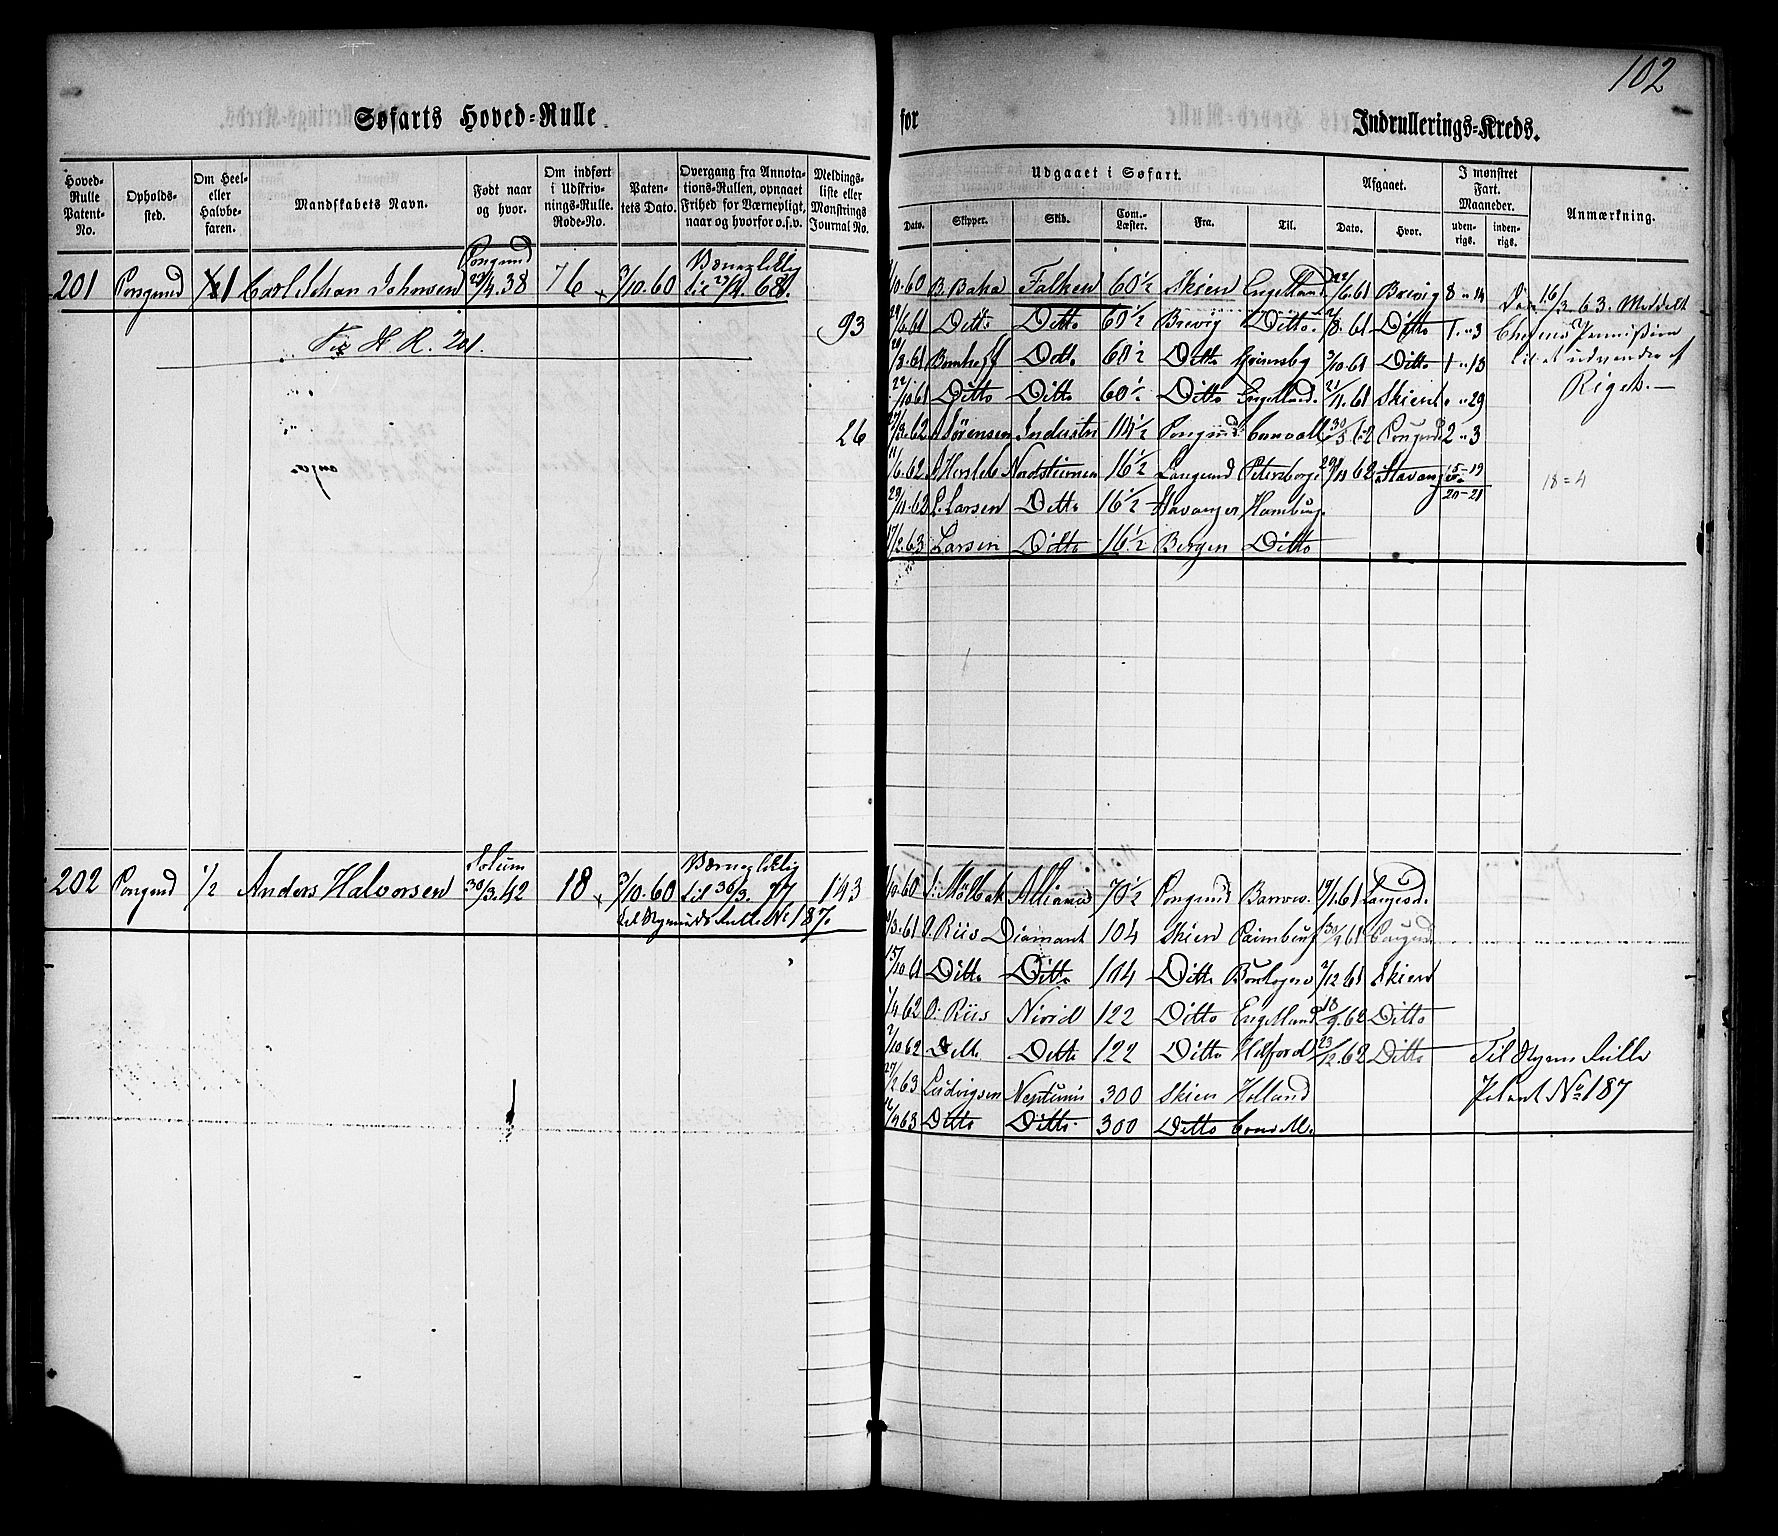 102
Søfarts Hoved-Rulle
for
Indrullerings-Kreds.
Hoved-Rulle Patent-No.
Opholds-sted.
Om Heel- eller Halvbe-faren.
Mandskabets Navn.
Født naar og hvor.
Om indført i Udskriv-nings-Rulle. Rode-No.
Paten-tets Dato.
Overgang fra Annota-tions-Rullen, opnaaet Frihed for Værnepligt, naar og hvorfor o.s.v.
Meldings-liste eller Mønstrings Journal No.
Udgaaet i Søfart.
Afgaaet.
I mønstret Fart. Maaneder.
Anmærkning.
Dato.
Skipper.
Skib.
Com.-Læster.
Fra.
Til.
Dato.
Hvor.
uden-rigs.
inden-rigs.
201 Porsgrund 1 Carl Johan Johnsen Porsgrund 29/4.38 76 3/10.60 Værnepligtig til 29/4. 68.
93
H R. 201.
26
/10.60 Falken 60 1/2 Skien Engelland 22/6.61 Brevig 8 " 14
29/6.61 Ditto Ditto 60 1/2 Brevig Ditto /8.61 Ditto 1 " 3
20/8.61 Bomhoff Ditto 60 1/2 Ditto Grimsby 3/10.61 Ditto 1 " 13
22/10.61 Ditto Ditto 60 1/2 Ditto Engelland. 21/11.61 Skien " 29
27/3.62 A Sørensen Industri 114 1/2 Porsgrund 30/5 62 Porsgrund 2 " 3
11/6.62 Nordstiernen 16 1/2 Langesund Petersborg 29/11 62 Stavanger 5-19
20-21
29/11.62 L. Larsen Ditto 16 1/2 Stavanger Hamburg.
17/2.63 Larsen Ditto 16 1/2 Bergen Ditto
Den 16/3. 63. Meddelt
Chefens Permission
til at udvandre af
Riget.
18 = 4
202 Porsgrund 1/2 Anders Halvorsen Solum 30/3.42 18 3/10.60 Værnepligtig til 30/3. 77 143
Rulle No 187.
/10.60 Alliance 70 1/2 Porsgrund 19/1.61 Langesd.
/3.61 O. Riis Diamant 104 Skien 30/9.61 Porsgrund
15/10.61 Ditto Ditto 104 Ditto Boulogne 2/12 61 Skien
/4.62 O. Riis 122 Ditto Engelland 18/9.62 Ditto
2/10.62 Ditto Ditto 122 Ditto 23/12.62 Ditto
27/2 63 Ludvigsen Neptunus 300 Skien Holland
63 Ditto Ditto 300 Ditto
Til Rulle
Patent No 187